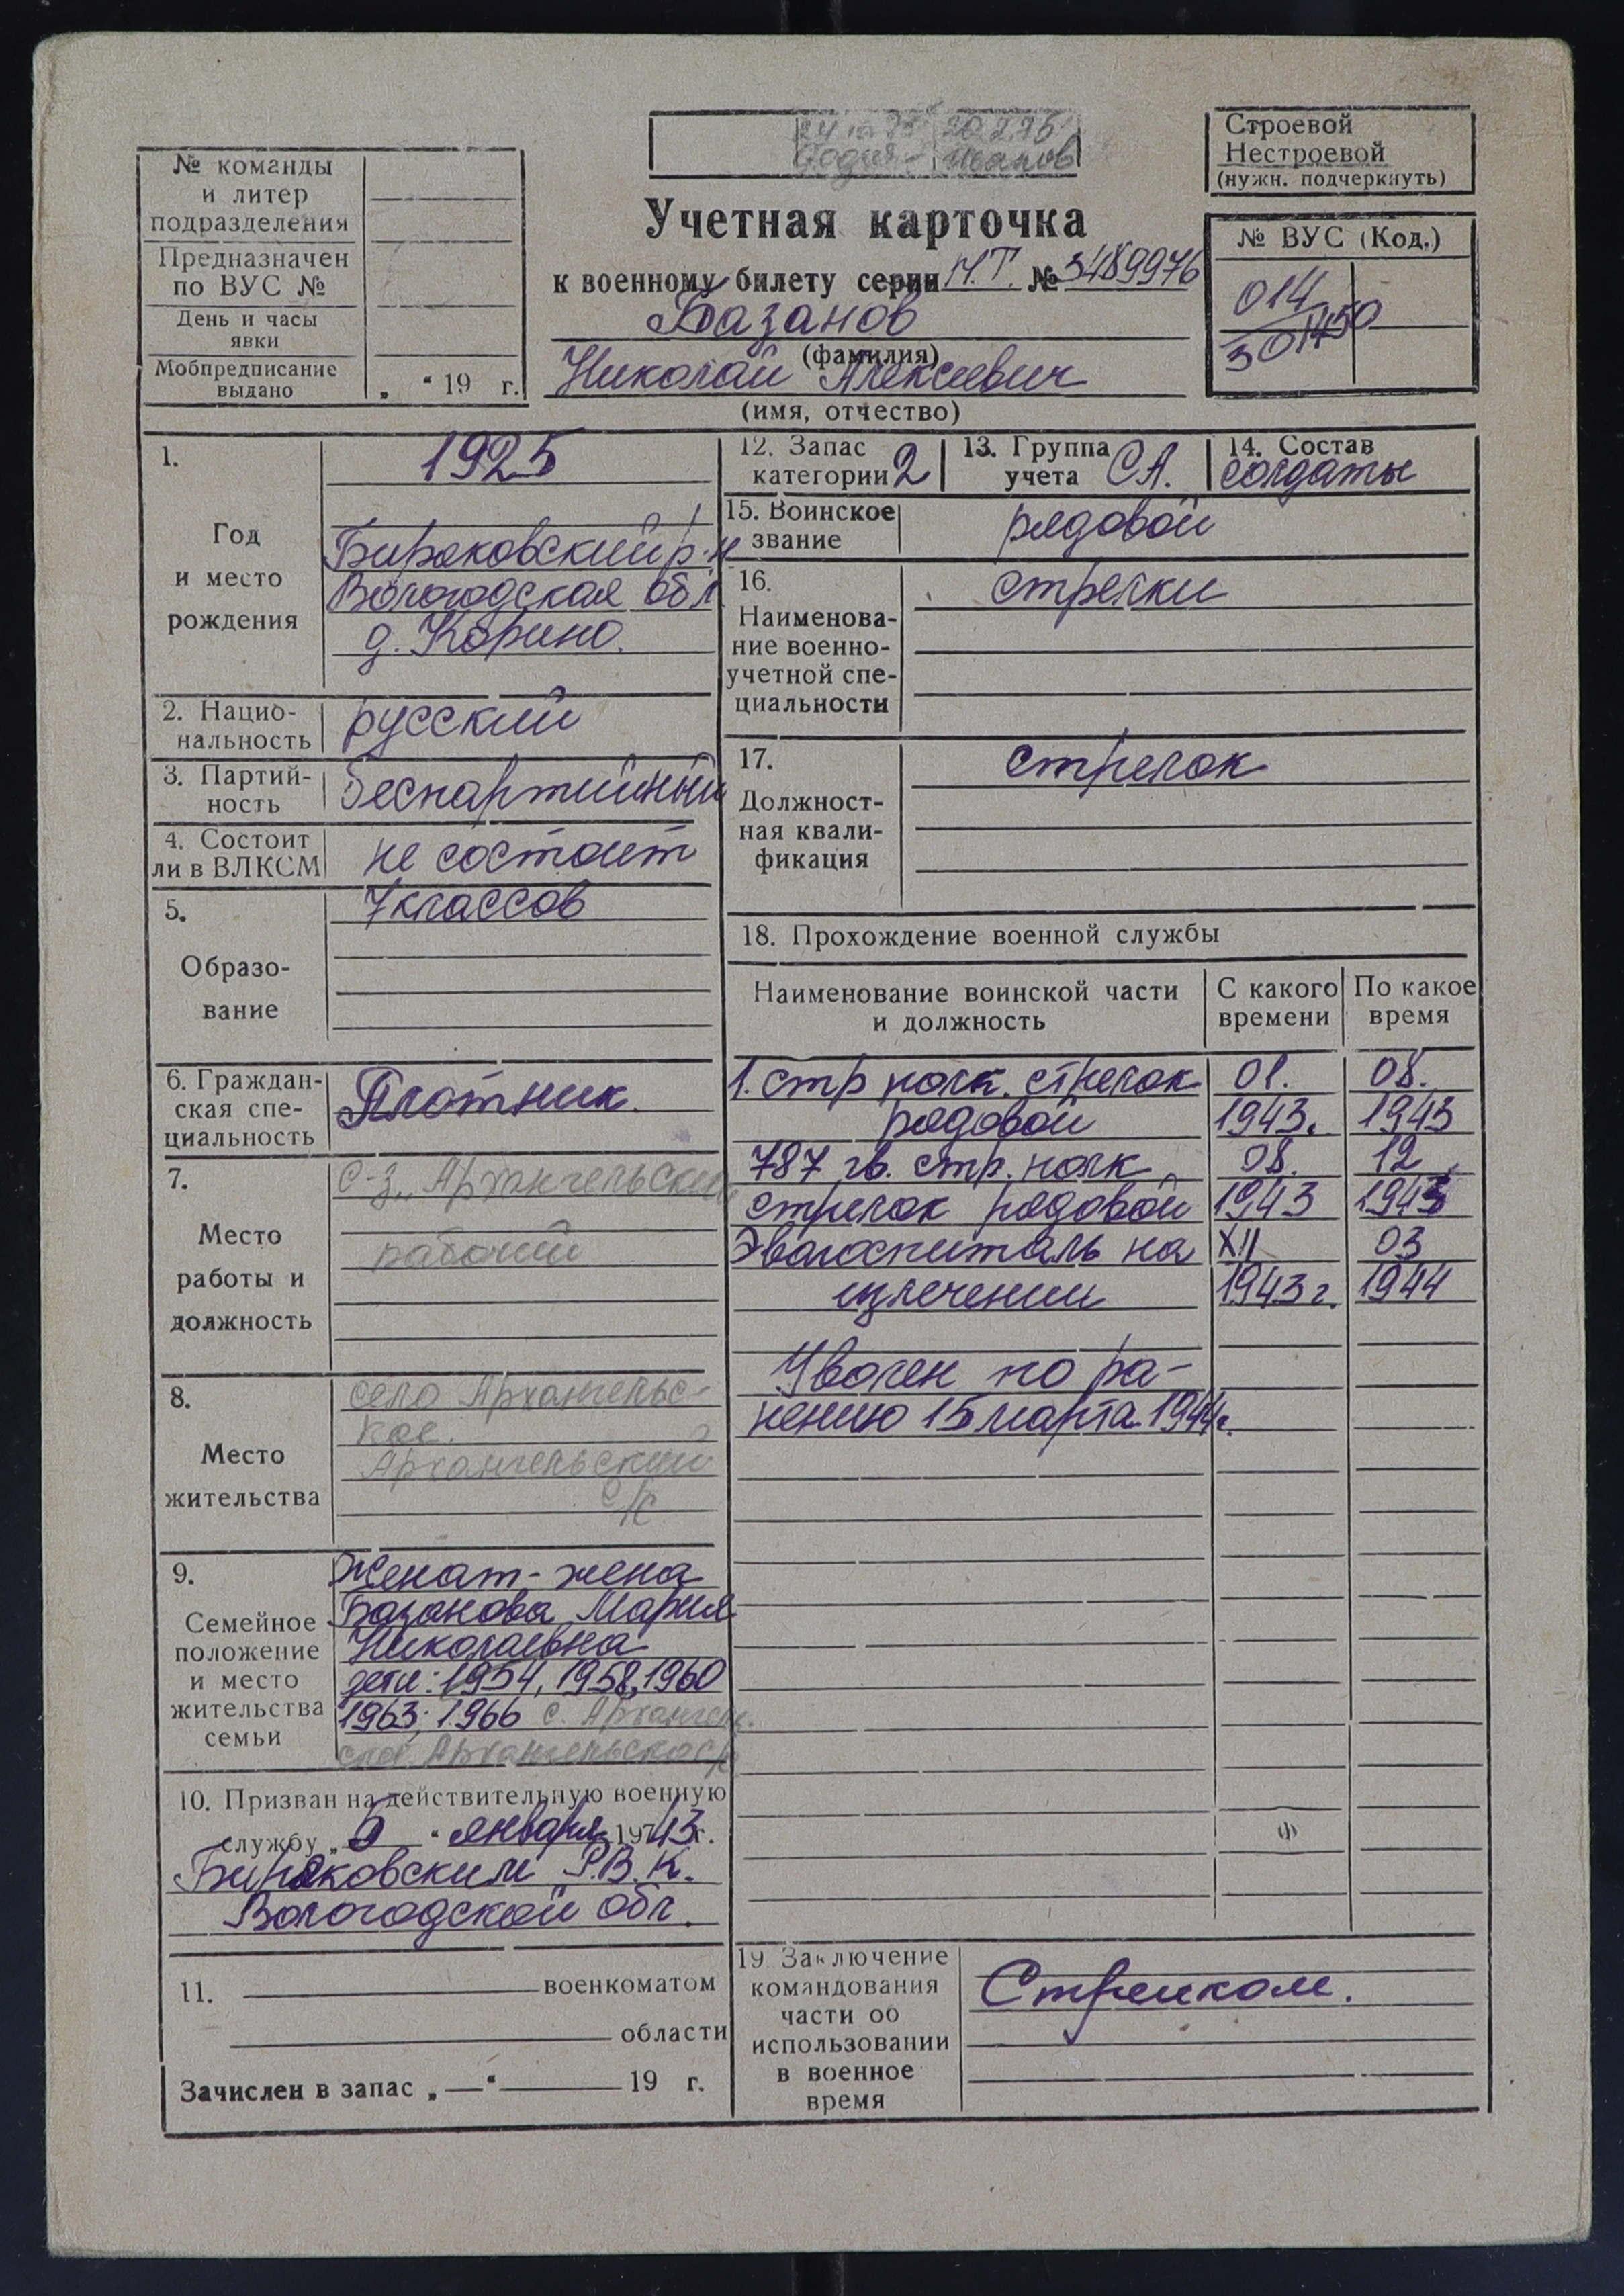 24 10 75 20.2.76
Иванов
Строевой
Нестроевой
(нужн. подчеркнуть)
№ команды
и литер
подразделения
Предназначен
по ВУС №
День и часы
явки
Мобпредписание
выдано „ “ 19 г.
Учетная карточка
к военному билету серии Н.Т. № 3489976
Базанов
(фамилия)
Николай Алексеевич
(имя, отчество)
№ ВУС (Код.)
014
301450
1.
Год
и место
рождения
1925
Биряковский р-н
Вологодская обл
д. Корино.
2. Нацио-
нальность
русский
3. Партий-
ность
беспартийный
4. Состоит
ли в ВЛКСМ
не состоит
5.
Образо-
вание
7 классов
6. Граждан-
ская спе-
циальность
Плотник.
7.
Место
работы и
должность
с-з „Архангельский
рабочий
8.
Место
жительства
село Архангельс-
кое.
Архангельский
с/с
9.
Семейное
положение
и место
жительства
семьи
Женат - жена
Базанова Мария
Николаевна
дети: 1954, 1958, 1960
1963; 1966 с. Архангель-
ское Архангельского с/с
10. Призван на действительную военную
службу „ 5 “ января 1943 г.
Биряковским Р.В.К.
Вологодской обл.
11. военкоматом
области
Зачислен в запас „ — “ 19 г.
12. Запас
категории 2
13. Группа
учета СА.
14. Состав
солдаты
15. Воинское
звание
рядовой
16.
Наименова-
ние военно-
учетной спе-
циальности
стрелки
17.
Должност-
ная квали-
фикация
стрелок
18. Прохождение военной службы
Наименование воинской части
и должность
С какого
времени
По какое
время
1. стр полк. стрелок 01. 08.
рядовой 1943. 1943
787 гв. стр. полк 08. 12
стрелок рядовой 1943 1943
Эвагоспиталь на XII 03
излечении 1943 г. 1944
Уволен по ра-
нению 15 марта 1944г.
ф
19 Заключение
командования
части об
использовании
в военное
время
Стрелком.